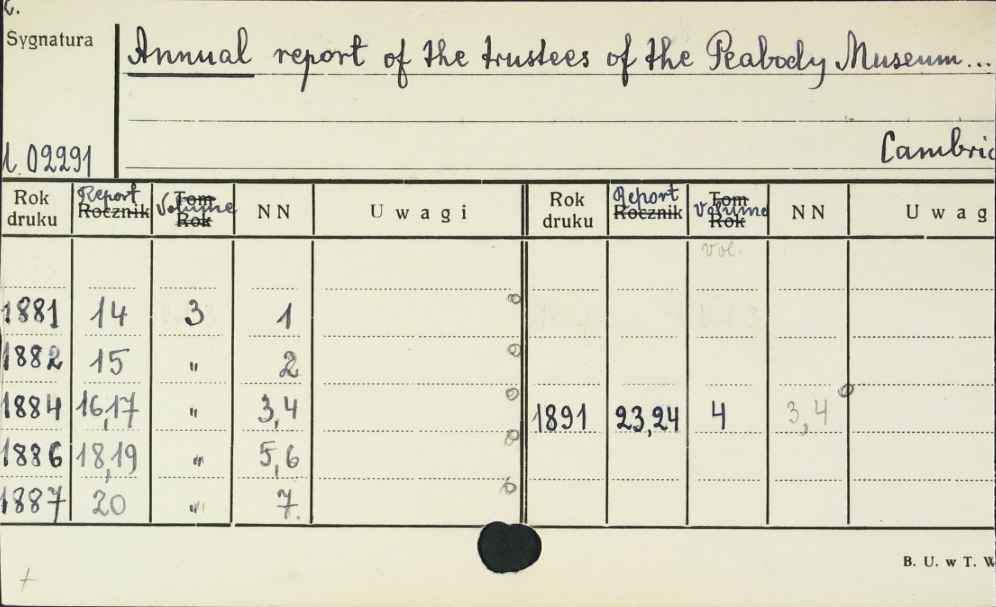 Sygnatura
Annual report of the trustees of the Peabody Museum...
Cambrid
02291
Rok druku Report Rocznik Volume Tom Rok NN Uwagi Rok druku Report Rocznik Volume Tom Rok NN Uwag
vol.
1881 14 3 1
1882 15 " 2
1884 16,17 " 3,4 1891 23,24 4 3,4
1886 18,19 " 5,6
1887 20 " 7.
B. U. w T. W